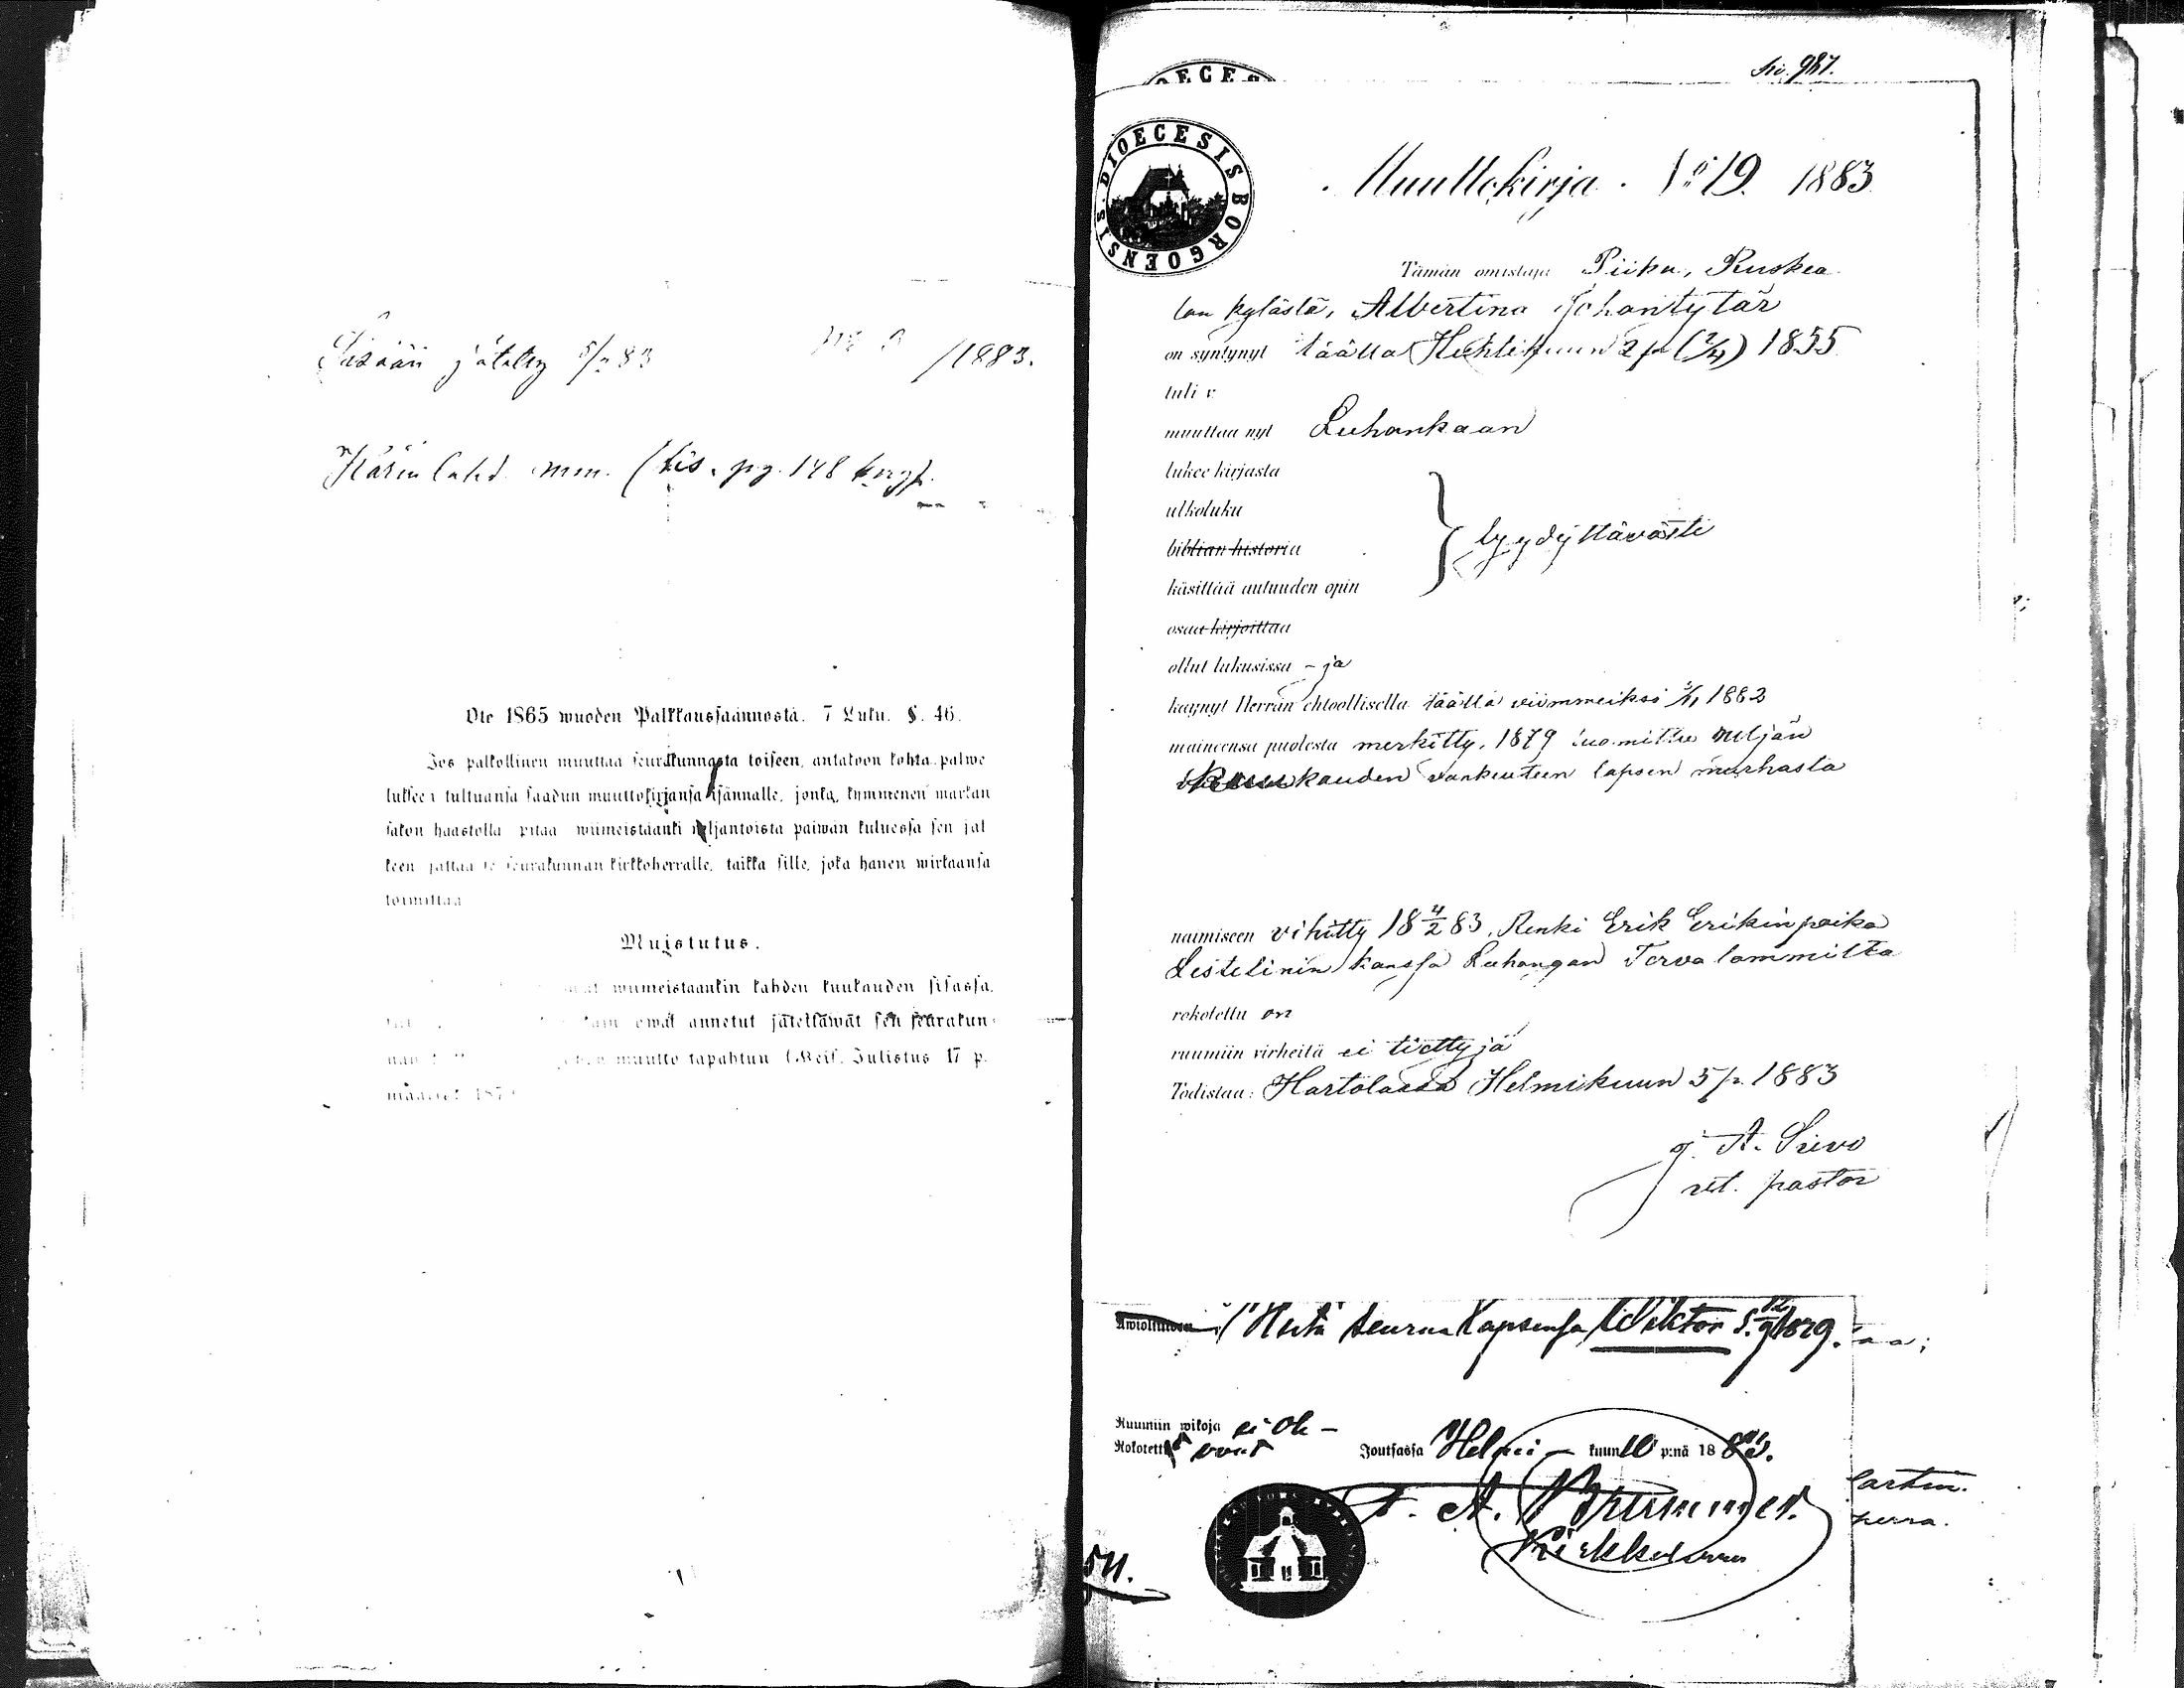 Sisään jätetty 5/2 83
/1883.
Kärin lahd. mm. (kis. pg. 148
Ote 1865 wuoden Palkkaussäännöstä. 7 Luku. §. 46.
Jos palkollinen muuttaa seurakunnasta toiseen, antakoon kohta palwe
lukseen tultuansa saadun muuttokirjansa isännälle, jonka, kymmenen markan
sakon haastolla pitää wiimeistäänki neljäntoista päiwän kuluessa sen jäl
keen jättää se seurakunnan kirkkoherralle, taikka sille, joka hänen wirkaansa
toimittaa
Muistutus.
wiimeistäänkin kahden kuukauden sisässä,
owat annetut jätettäwät sen seurakun-
muutto tapahtuu (Keis. Julistus 17 p.
Siv. 987.
DIOECESIS BORGOENSIS.
Muuttokirja. No 19. 1883
Tämän omistaja Piika, Ruskea
lan kylästä, Albertina Johantytär
on syntynyt täällä Huhtikuun 2 p (2/4) 1855
tuli v.
muuttaa nyt Luhankaan
lukee kirjasta
ulkoluku
biblian historia
tyydyttävästi
käsittää autuuden opin
osaa kirjoittaa
ollut lukusissa – ja
käynyt Herran ehtoollisella täällä viimmeiksi 1882
maineensa puolesta merkitty, 1879 tuomittu neljän
kuukauden vankeuteen lapsen murhasta
naimiseen vihitty 18 4/2 83, Renki Erik Erikinpoika
Listelinin kanssa Luhangan Tervalammilta
rokotettu on
ruumiin virheitä ei tiettyjä
Todistaa: Hartolassa Helmikuun 5 p. 1883
A. Sievo
vct. pastor
seuraa Lapsensa Wiktor s.
Ruumiin wikoja ei ole –
Rokotettu ovat
Joutsassa Helmi – kuun 10 p:nä 1883.
A. Brummer.
Kirkkoherra